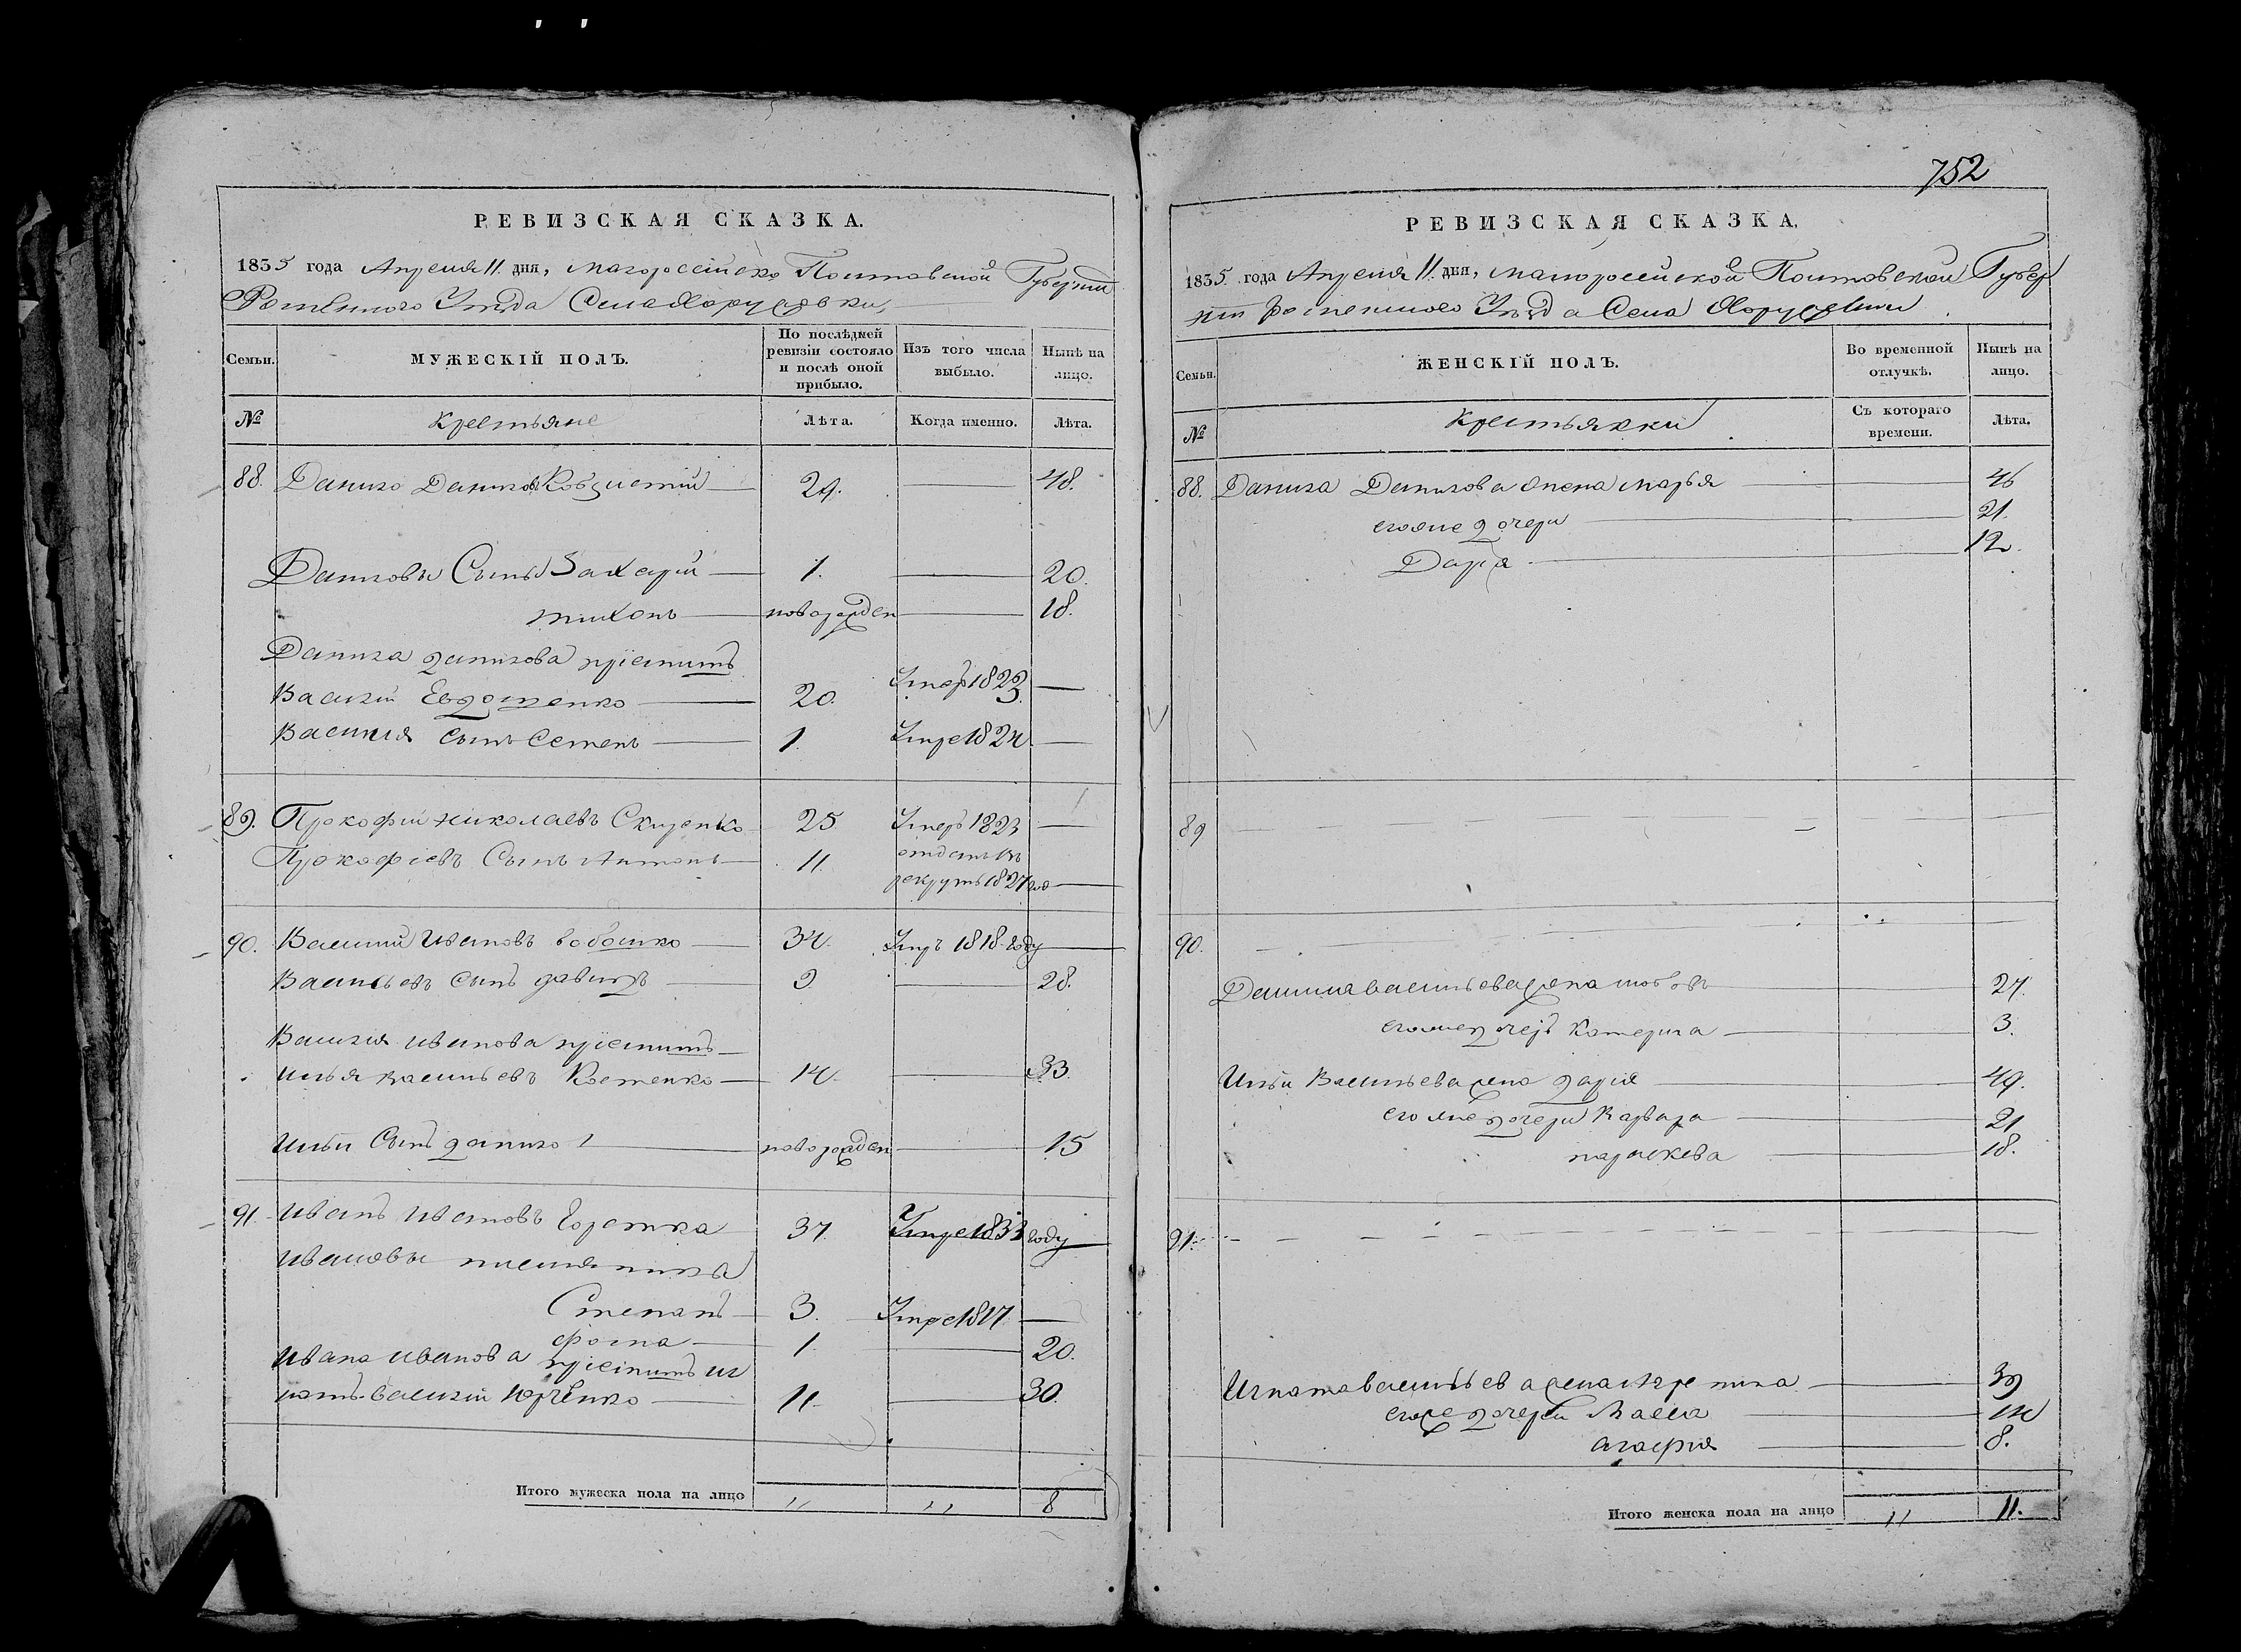 752
РЕВИЗСКАЯ СКАЗКА.
1835 года Апреля 11 дня, Малоросейско Полтавской Губерніи
Роменного Уезда Села Хоружовки,
Семьи.
МУЖЕСКІЙ ПОЛЪ.
По послѣдней ревизіи состояло и послѣ оной прибыло.
Изъ того числа выбыло.
Нынѣ на лицо.
№
крестьяне
Лѣта.
Когда именно.
Лѣта.
88. Данило Данилов 29. 48.
Даниловы Сыны Захарій 1. 20.
тихонъ новорожден 18.
Данила данилова пріемитъ
Василій Евдошенко 20. Умер 1823
Василія сынъ Семенъ 1. Умре 1824
89. Прокофій николаевъ 25 Умеръ 1823
Прокофіевъ Сынъ Антонъ 11. отданъ въ
рекруты 1827 год
90. Василий Ивановъ 34. Умръ 1818 году
Васильевъ сынъ давидъ 9 28.
Василія иванова пріемитъ
Илья васильевъ Костенко 14. 33.
Ильи Сынъ данило 1 новорожден 15
91. Иванъ Ивановъ 37. Умре 1833 году
Ивановы племянника
Степанъ 3. Умре 1817
фома 1. 20.
Ивана иванова пріемитъ иг
натъ василій Юрченко 11. 30.
Итого мужеска пола на лицо 8
РЕВИЗСКАЯ СКАЗКА.
1835 года Апреля 11 дня, малоросейской Полтовской Губер
ніи роменского Уезда Села Хоружовки
Семьи.
ЖЕНСКІЙ ПОЛЪ.
Во временной отлучкѣ.
Нынѣ на лицо.
№
крестьянки
Съ котораго времени.
Лѣта.
88. Данила Данилова жена марья 46
егоже дочери 21.
Дарія 12.
89
90.
васильева жена 27.
егоже дочерь Катерина 3.
Ильи Васильева жена дарія 49.
егоже дочери варвара 21
параскева 18.
91.
Игната васильева жена 39
егоже дочери 14
агафия 8.
Итого женска пола на лицо 11 11.